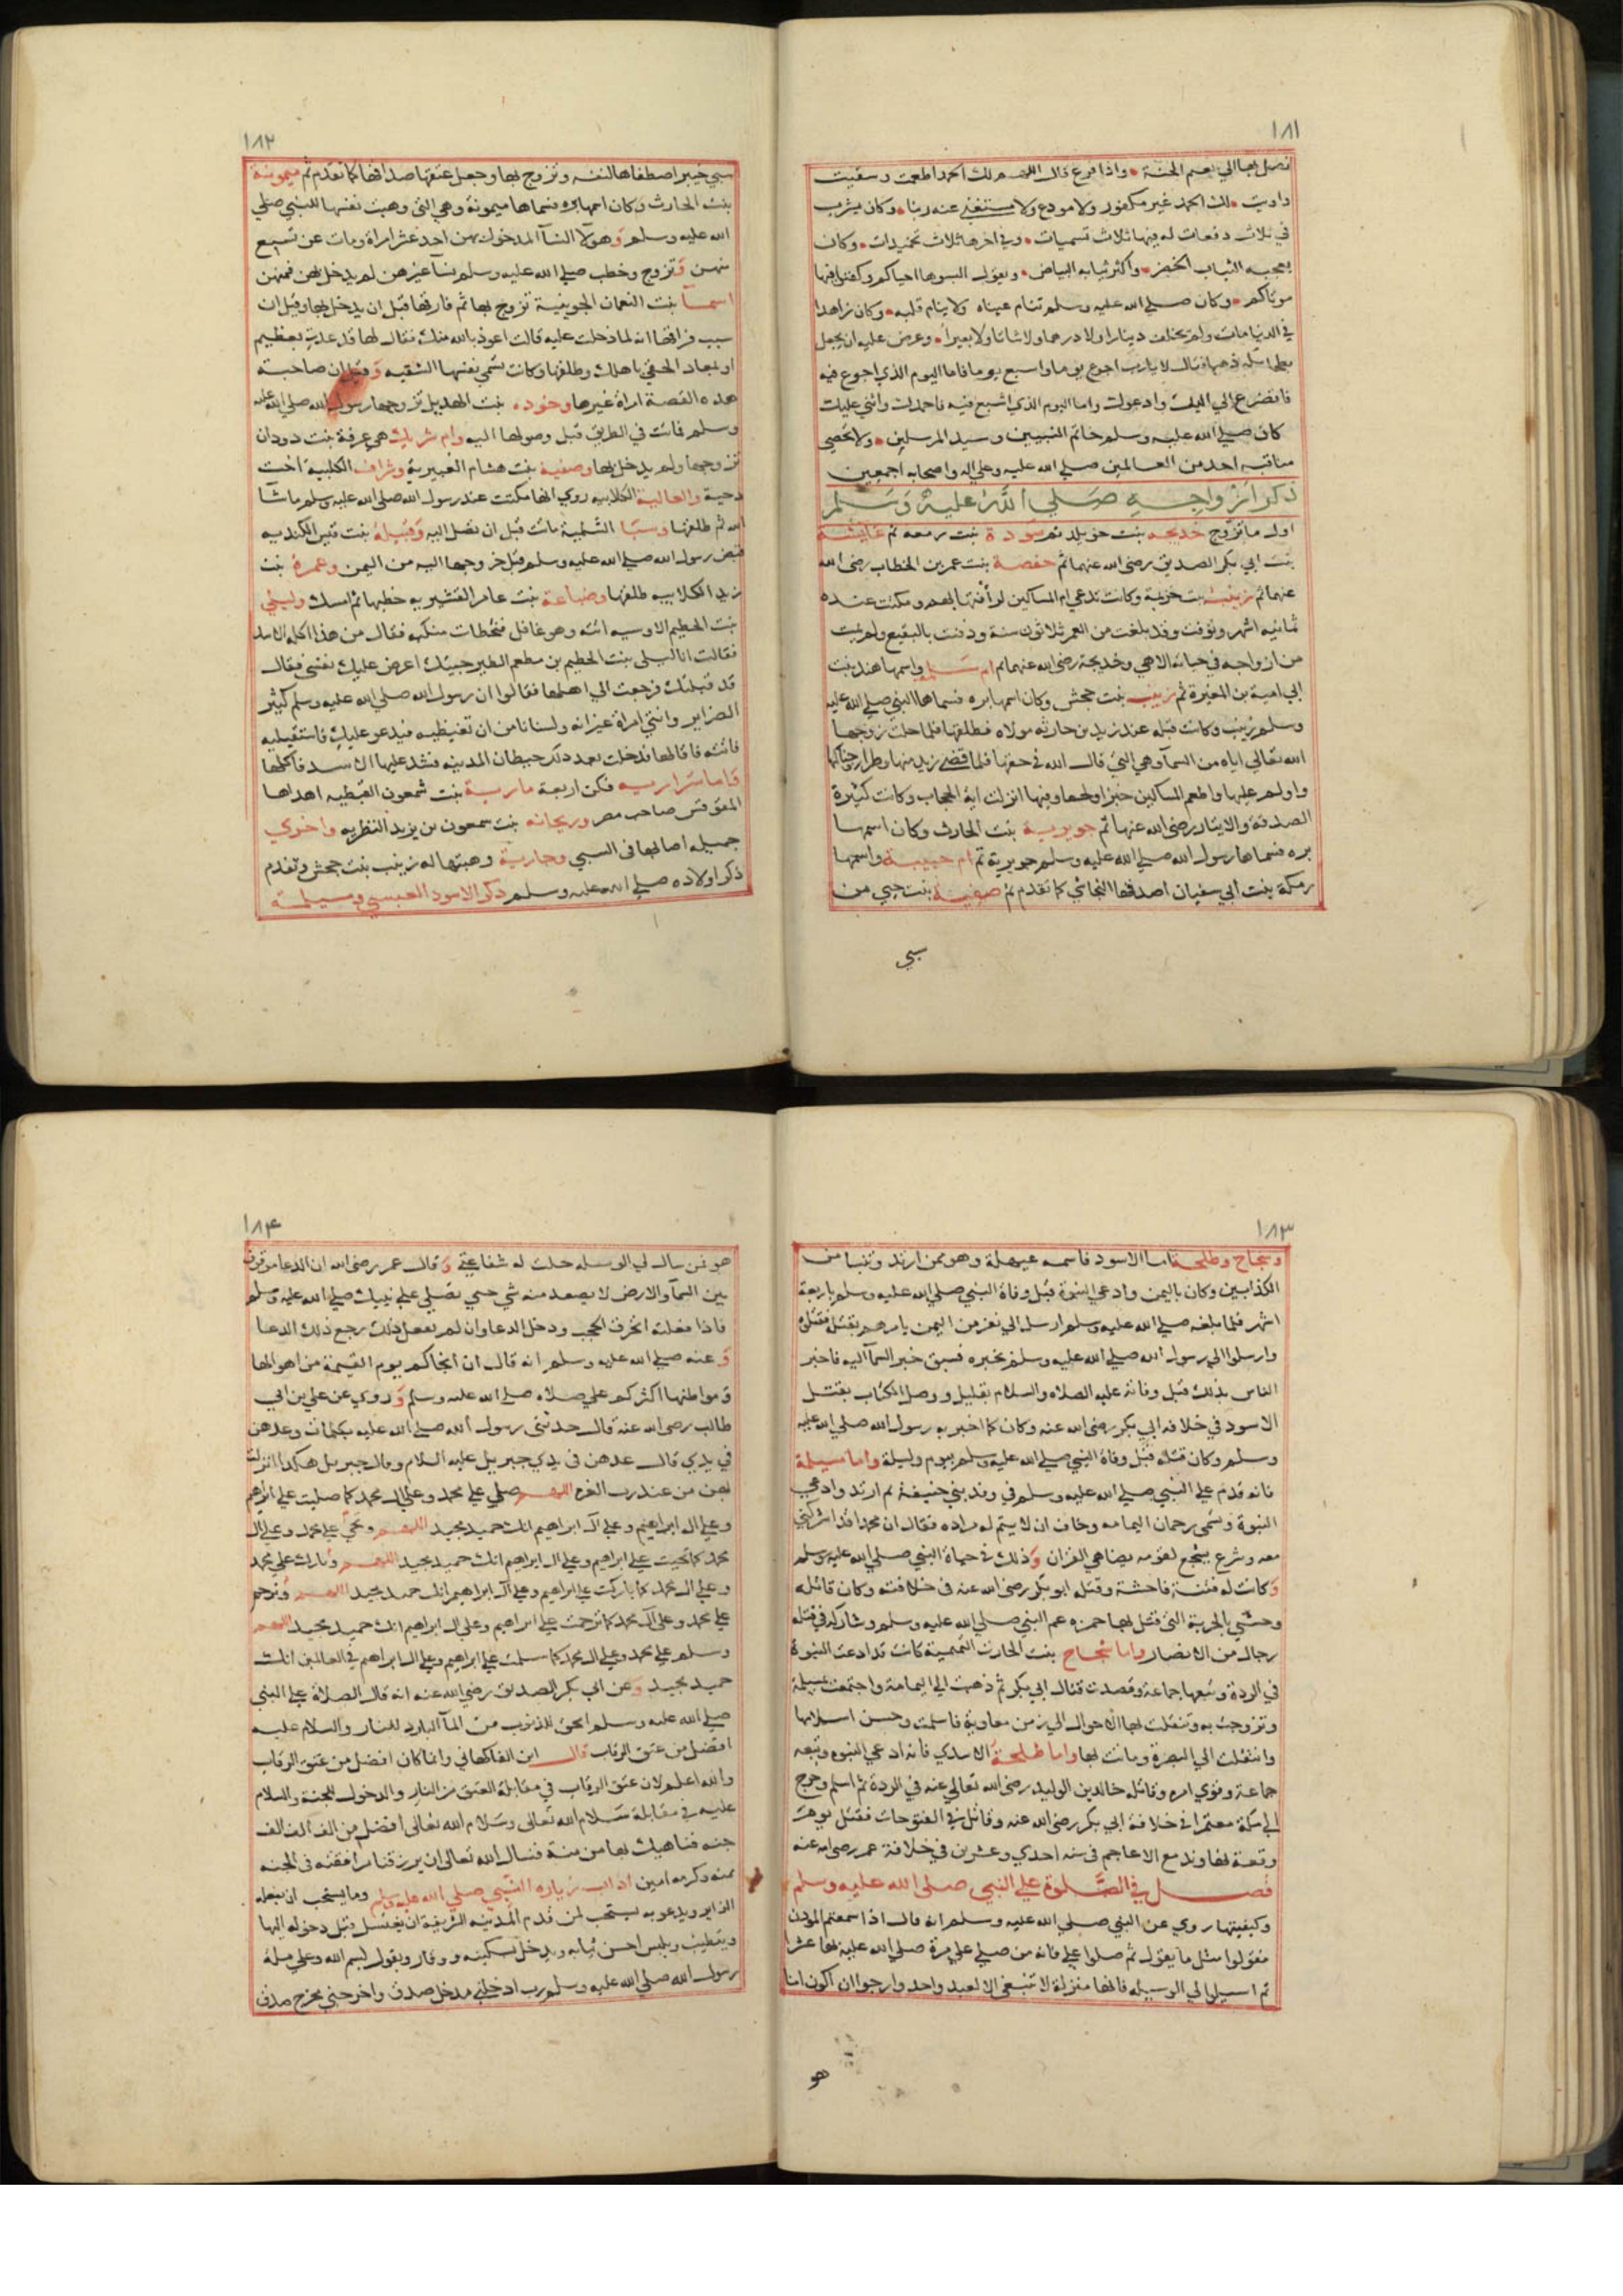 ١٨١
فضل بها الي نعيم الجنة واذا فرغ قال اللهم لك الحمد اطعمت وسقيت
واويت لك الحمد غير مكفور ولا مودع ولا مستغني عنه ربنا وكان يشرب
في ثلاث دفعات له فيها ثلاث تسميات وفي اخرها ثلاث تحميدات وكان
يعجبه الثياب الخضر واكثر ثيابه البياض ويقول البسوها احياكم وكفنوا فيها
موتاكم وكان صلي الله عليه وسلم تنام عيناه ولا ينام قلبه وكان زاهدا
في الدنيا مات ولم يخلف دينارا ولا درهما ولا شاتا ولا بعيرا وعرض عليه ان يجعل
بطحا مكة ذهبا فقال لا يارب اجوع يوما واسبع يوما فاما اليوم الذي اجوع فيه
فاتضرع الي اليك وادعوك واما اليوم الذي اشبع فيه فاحمدك واثني عليك
كان صلي الله عليه وسلم خاتم النبيين وسيد المرسلين ولا تحصي
مناقبه احد من العالمين صلي الله عليه وعلي اله واصحابه اجمعين
ذكر ازواجه صلي الله عليه وسلم
اول ما تزوج خديجه بنت خويلد ثم سودة بنت زمعه ثم عايشة
بنت ابي بكر الصديق رضى الله عنهما ثم حفصة بنت عمر بن الخطاب رضى الله
عنهما ثم زينب بنت خزيمة وكانت تدعي ام المساكين لرأفتها بهم ومكثت عنده
ثمانيه اشهر وتوفت وقد بلغت من العمر ثلاثون سنة ودفنت بالبقيع ولم يمت
من ازواجه في حياته الا هي وخديجة رضى الله عنهما ثم ام سلمه واسمها هند بنت
ابي امية بن المغيرة ثم زينب بنت جحش وكان اسمها بره فسماها النبي صلي الله عليه
وسلم زينب وكانت قبله عند زيد بن حارثه مولاه فطلقها فلما حلت زوجها
الله تعالي اياه من السمآ وهي التي قال الله في حقها فلما قضي زيد منها وطرا زوجناكها
واولم عليها واطعم المساكين خبزا ولحما وفيها انزلت اية الحجاب وكانت كثيرة
الصدقة والايثار رضى الله عنها ثم جويرية بنت الحارث وكان اسمها
بره فسماها رسول الله صلي الله عليه وسلم جويرية ثم ام حبيبة واسمها
رمكة بنت ابي سفيان اصدقها النجاشي كما تقدم ثم صفية بنت حيي من
سبي
١٨٢
سبي خيبر اصطفاها لنفسه وتزوج بها وجعل عتقها صداقها كما تقدم ثم ميمونة
بنت الحارث وكان اسمها بره فسماها ميمونة وهي التي وهبت نفسها للنبي صلي
الله عليه وسلم وهولآ النسآ المدخول بهن احد عشر امراة ومات عن تسع
منهن وتزوج وخطب صلي الله عليه وسلم نسآ غيرهن لم يدخل بهن فمنهن
اسمآ بنت النعمان الجوينية تزوج بها ثم فارقها قبل ان يدخل بها وقيل ان
سبب فراقها انه لما دخلت عليه قالت اعوذ بالله منك فقال لها قد عذت بعظيم
او بمعاد الحقي باهلك وطلقها وكانت تسمي نفسها الشقيه وقيل ان صاحبة
هذه القصة امراة غيرها وخوده بنت الهديل تزوجها رسول الله صلي الله عليه
وسلم فماتت في الطريق قبل وصولها اليه وام شريك هي عرفة بنت دودان
تزوجها ولم يدخل بها وصفية بنت هشام العنبرية وشراف الكلبية اخت
دحية والعالية الكلابيه روي انها مكثت عند رسول الله صلى الله عليه وسلم ما شآ
الله ثم طلقها وسبا السلمية ماتت قبل ان تصل اليه وقتيلة بنت قيس الكنديه
قبض رسول الله صلي الله عليه وسلم قبل خروجها اليه من اليمن وعمرة بنت
زيد الكلابيه طلقها وضباعة بنت عامر القشيريه خطبها ثم امسك وليلي
بنت الخطيم الاوسيه اتته وهو غافل فخطات منكبه فقال من هذا اكله الاسد
فقالت انا ليلى بنت الخطيم بن مطعم الطير جيتك اعرض عليك نفسي فقال
قد قبلتك فرجعت الي اهلها فقالوا ان رسول الله صلى الله عليه وسلم كثير
الضراير وانتي امراة غيرانه ولسنا نامن ان تغيظيه فيدعو عليك فاستقيليه
فاتته فاقالها فدخلت بعد ذلك حيطان المدينه فشد عليها الاسد فاكلها
واما سراريه فكن اربعة مارية بنت شمعون القبطيه اهداها
المقوقس صاحب مصر وريحانه بنت سمعون بن يزيد النظريه واخري
جميله اصابها في السبي وجارية وهبتها له زينب بنت جحش وتقدم
ذكر اولاده صلي الله عليه وسلم ذكر الاسود العبسي ومسيلمة
١٨٣
وسجاح وطلحة اما الاسود فاسمه عيهلة وهو ممن ارتد وتنبا من
الكذابين وكان باليمن وادعي النبوة قبل وفاة النبي صلي الله عليه وسلم باربعة
اشهر فلما بلغه صلي الله عليه وسلم ارسل الي نفر من اليمن يامرهم بقتله فقتلوه
وارسلوا الي رسول الله صلي الله عليه وسلم تخبره فسبق خبر السمآ اليه فاخبر
الناس بذلك قبل وفاته عليه الصلاه والسلام بقليل ووصل الكتاب بقتل
الاسود في خلافه ابي بكر رضى الله عنه وكان كما اخبر به رسول الله صلي الله عليه
وسلم وكان قتله قبل وفاة النبي صلي الله عليه وسلم بيوم وليلة واما مسيلمة
فانه قدم علي النبي صلي الله عليه وسلم في وفد بني حنيفة ثم ارتد وادعي
النبوة وتسمى رحمان اليمامه وخاف ان لا يتم له مراده فقال ان محمدا قد اشركني
معه وشرع يسجع لقومه يضاهي القران وذلك في حياة النبي صلي الله عليه وسلم
وكانت له فتنة فاحشة وقتله ابو بكر رضى الله عنه في خلافته وكان قاتله
وحشي بالحربة التي قتل بها حمزه عم النبي صلي الله عليه وسلم وشاركه في قتله
رجال من الانصار واما سجاح بنت الحارث التميمية كانت قد ادعت النبوة
في الردة وتبعها جماعة وقصدت قتال ابي بكر ثم ذهبت الي اليمامة واجتمعت بمسيلمة
وتزوجت به وتنقلت بها الاحوال الي زمن معاوية فاسلمت وحسن اسلامها
وانتقلت الي البصرة وماتت بها واما طلحة الاسدي فانه ادعي النبوه وتبعه
جماعة وقوي امره وقاتله خالد بن الوليد رضى الله تعالي عنه في الردة ثم اسلم وخرج
الي مكة معتمرا في خلافة ابي بكر رضى الله عنه وقاتل في الفتوحات فقتل يوم
وقعة نهاوند مع الاعاجم في سنه احدي وعشرين في خلافة عمر رضى الله عنه
فصل في الصلوة علي النبي صلى الله عليه وسلم
وكيفيتها روي عن النبي صلي الله عليه وسلم انه قال اذا سمعتم الموذن
فقولوا مثل ما يقول ثم صلوا علي فانه من صلي علي مرة صلي الله عليه بها عشرا
ثم اسيلوا لي الوسيله فانها منزلة لا تنبغي الا لعبد واحد وارجوا ان اكون انا
هو
١٨٤
هو فمن سال لي الوسيله حلت له شفاعتي وقال عمر رضى الله ان الدعا موقوف
بين السمآ والارض لا يصعد منه شي حتي تصلي علي نبيك صلي الله عليه وسلم
فاذا فعلت انخرق الحجب ودخل الدعا وان لم تفعل ذلك رجع ذلك الدعا
وعنه صلي الله عليه وسلم انه قال ان انجاكم يوم القيمة من اهوالها
ومواطنها اكثركم علي صلاه صلي الله عليه وسلم وروي عن علي بن ابي
طالب رضى الله عنه قال حدثني رسول الله صلي الله عليه بكلمات وعدهن
في يدي قال عدهن في يدي جبريل عليه السلام وقال جبريل هكذا انزلت
بهن من عند رب العزه اللهم صلي علي محمد وعلي ال محمد كما صليت علي ابراهيم
وعلي ال ابراهيم وعلي آل ابراهيم انك حميد مجيد اللهم وتحي علي محمد وعلي ال
محمد كما تحيت علي ابراهيم وعلي ال ابراهيم انك حميد مجيد اللهم وبارك علي محمد
وعلي ال محمد كما باركت علي ابراهيم وعلي آل ابراهيم انك حميد مجيد اللهم وترحم
علي محمد وعلي آل محمد كما ترحمت علي ابراهيم وعلي ال ابراهيم انك حميد مجيد اللهم
وسلم علي محمد وعلي ال محمد كما سلمت علي ابراهيم وعلي ال ابراهيم في العالمين انك
حميد مجيد وعن ابي بكر الصديق رضى الله عنه انه قال الصلاة علي النبي
صلي الله عليه وسلم امحق للذنوب من المآ البارد للنار والسلام عليه
افضل من عتق الرقاب قال ابن الفاكهاني وانما كان افضل من عتق الرقاب
والله اعلم لان عتق الرقاب في مقابلة العتق من النار والدخول للجنة والسلام
عليه في مقابلة سلام الله تعالى وسلام الله تعالى افضل من الف الف الف
جنه فناهيك بها من منة فنسال الله تعالى ان يرزقنا مرافقته في الجنه
بمنه وكرمه امين اداب زياره النبي صلي الله عليه وسلم وما يستحب ان يفعله
الزاير ويدعو به يستحب لمن قدم المدينه الشريفة ان يغتسل قبل دخوله اليها
ويتطيب ويلبس احسن ثيابه ويدخل بسكينه ووقار ويقول بسم الله وعلي ملة
رسول الله صلي الله عليه وسلم رب ادخلني مدخل صدق واخرجني مخرج صدق